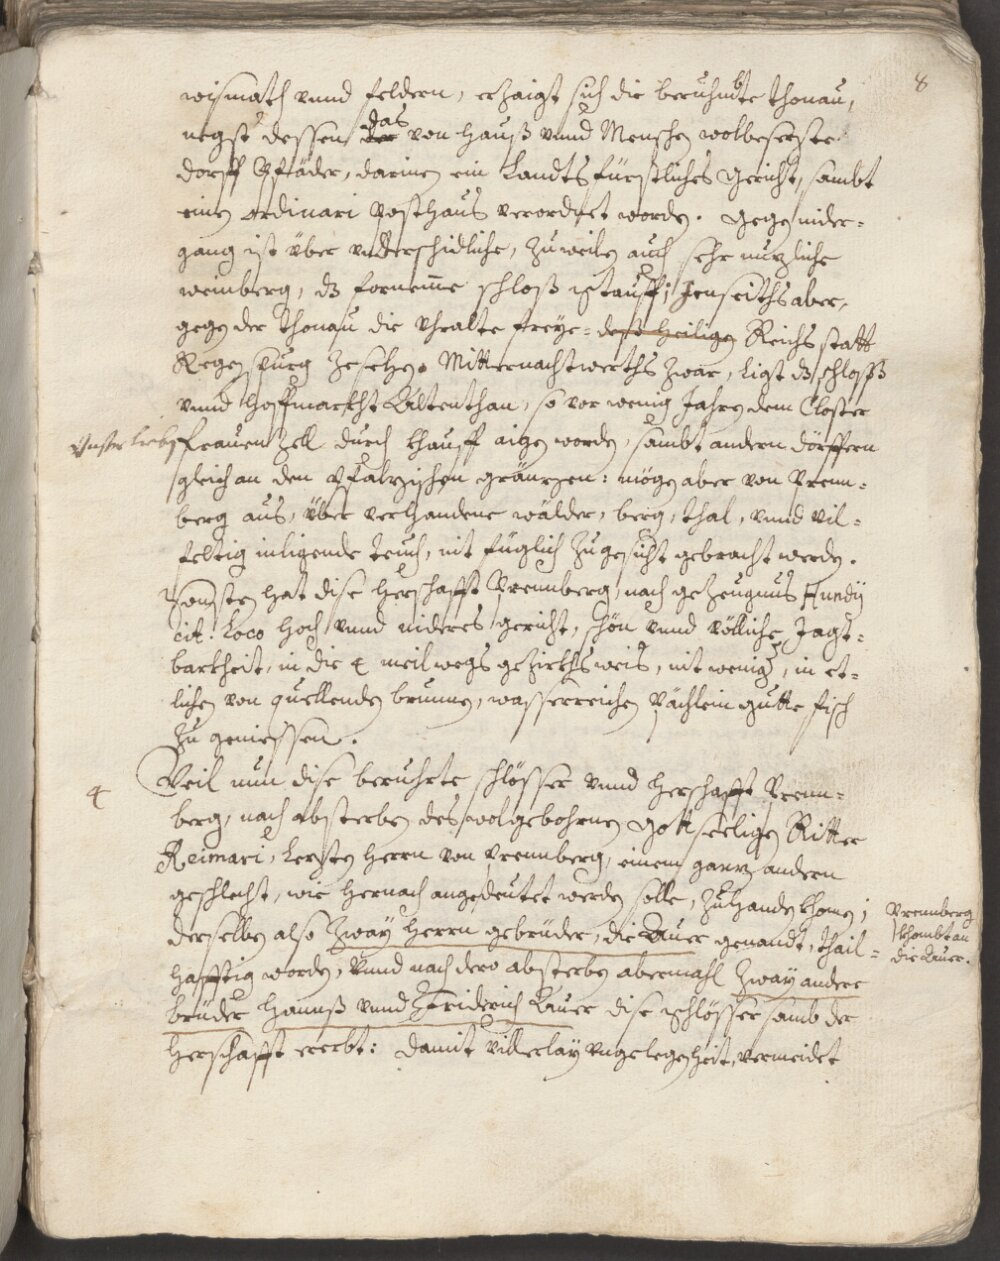 8
wismath vnnd feldern, erzaigt sich die berühmbte Thonau,
negst dessen das von Hauß vnnd Menschen wolbesetzte
dorff Pfäder, darinen ein Landtsfürstliches Gericht, sambt
einen ordinari Posthaus verordnet worden. Gegen nider=
gang ist über vnderschidliche, zuweilen auch sehr nutzliche
weinberg, dz fornemme schloß Stauff; Jenseiths aber,
gegen der Thonau die vhralte freye= deß Heiligen Reichs statt
Regenspurg zesehen. Mitternachtwerths zwar, ligt dz schloß
vnnd Hoffmarkht Altenthan, so vor wenig Jahren dem Closter
Vnser Lieben frauen Zell durch khauff aigen worden, sambt andern dörffern
gleich an den Pfalzischen gräntzen: mögen aber von Prenn=
berg aus, über verhandene wälder, berg, thal, vnnd vil=
feltig inligende teuch, nit füglich zu gesicht gebracht werden.
Sonsten hat dise Herschafft Prennberg, nach gezeugnus Hundÿ
cit. Loco hoch vnnd nideres gericht, schön vnnd völliche Jagt=
barkheit, in die 4 meil wegs gezirkhs weis, nit wenig, in et=
lichen von quellenden brunnen, wasserreichen Pächlein gutte fisch
zu geniessen.
4
Weil nun dise berührte schlösser vnnd Herschafft Prenn=
berg, nach absterben des wolgebohrnen Gottseeligen Ritter
Reimari, Lersten Herrn von Prennberg, einem gantz andern
geschlecht, wie hernach angedeutet werden solle, zuhanden khomen;
derselben also zwaÿ Herrn gebrüder, die Auer genandt, thail=
Prennberg
khombt an
die Auer.
hafftig worden, vnnd nach dero absterben abermahl zwaÿ andere
brüder Hannß vnnd Friderich Auer dise schlösser samb der
Herschafft ererbt: damit Villerlaÿ vngelegenheit, vermeidet